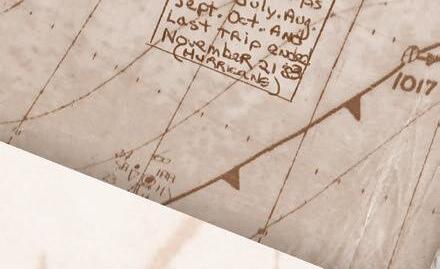 July. Aug.
Sept. Oct. And
Last Trip ended
November 21
(HURRICANE)
1017